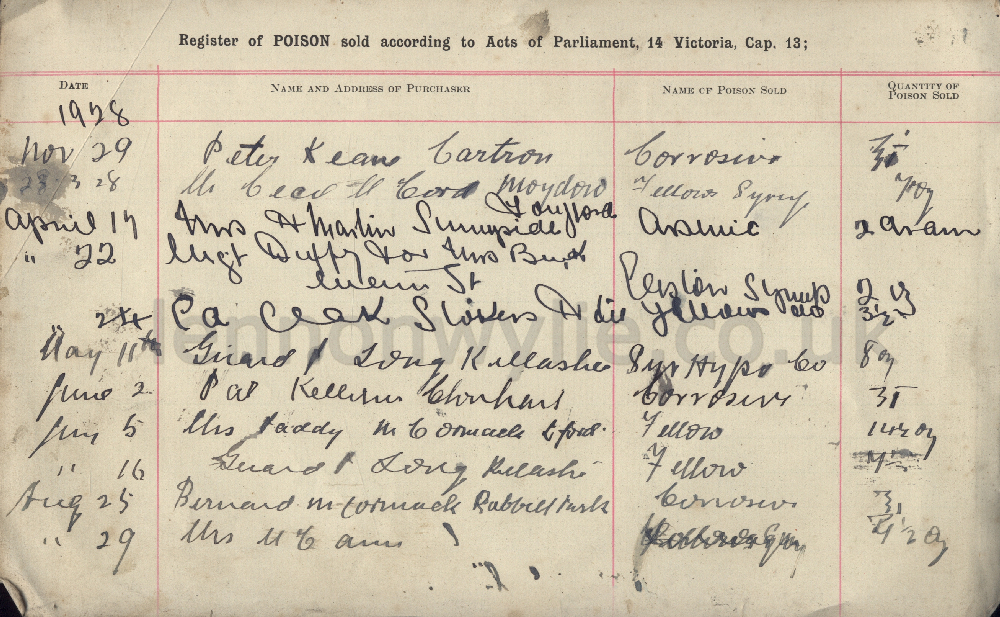 Register of POISON sold according to Acts of Parliament, 14 Victoria, Cap. 13;
DATE NAME AND ADDRESS OF PURCHASER NAME OF POISON SOLD QUANTITY OF POISON SOLD
1928
Nov 29 Peter Keane Cartron Corrosive
28 Mc Cord Moydow Fellows Syrup 7 oz
Longford
April 17 Mrs H Martin Sunnyside Arsenic 2 dram
" 22 Mgt Duffy for Mrs
St Easton Syrup 2 oz
24 Pa Stokers Fellows do 3½
May 11th Guard P Long Killashee Syr Hypo Co 8 oz
June 2 Pat Clonhart Corrosive
June 5 Mrs Paddy McCormack Lford Fellow 14½ oz
" 16 Guard P Long Killashee Fellow
Aug 25 Bernard McCormack Rabbit Park Corrosive
" 29 Mrs McCann Fellows Syrup 4½ oz
lennonwylie.co.uk